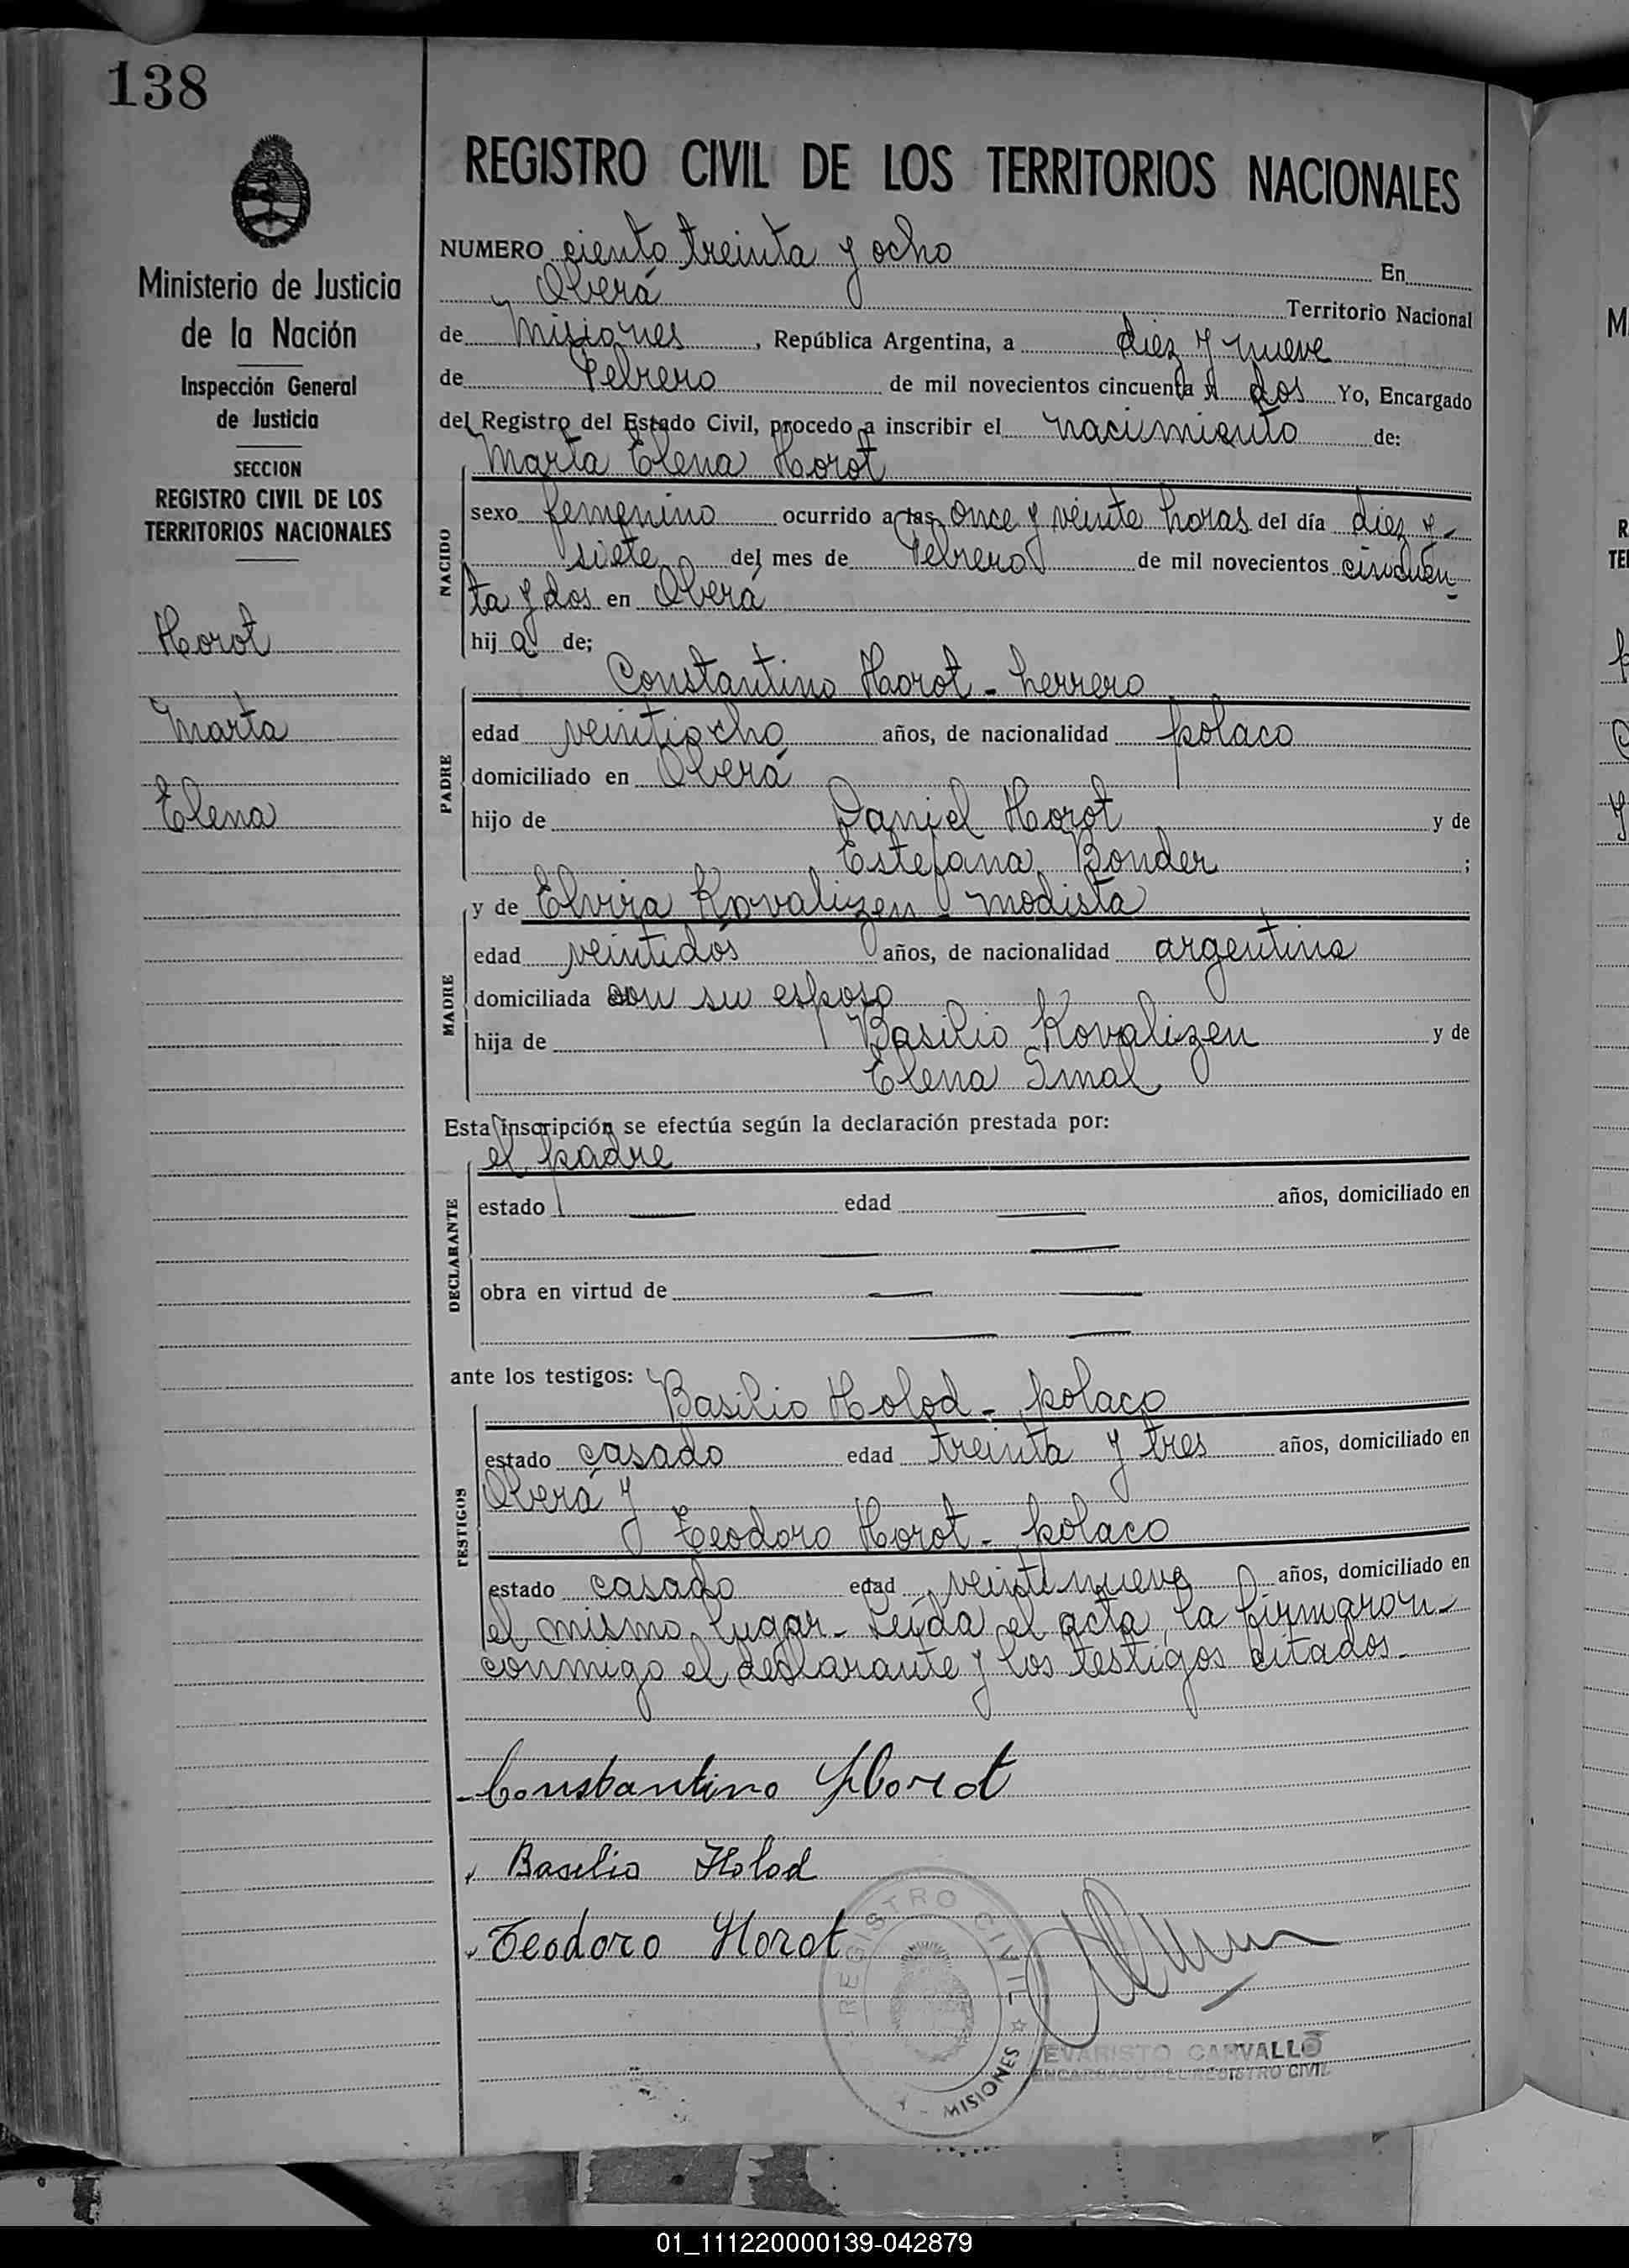 138
Ministerio de Justicia
de la Nación
Inspección General
de Justicia
SECCION
REGISTRO CIVIL DE LOS
TERRITORIOS NACIONALES
Horot
Marta
Elena
REGISTRO CIVIL DE LOS TERRITORIOS NACIONALES
NUMERO ciento treinta y ocho En
Oberá Territorio Nacional
de Misiones, República Argentina, a diez y nueve
de Febrero de mil novecientos cincuenta y dos Yo, Encargado
del Registro del Estado Civil, procedo a inscribir el nacimiento de:
Marta Elena Horot
NACIDO
sexo femenino ocurrido a las once y veinte horas del día diez y
siete del mes de Febrero de mil novecientos cincuen-
ta y dos en Oberá
hij a de;
Constantino Horot - herrero
PADRE
edad veintiocho años, de nacionalidad polaco
domiciliado en Oberá
hijo de Daniel Horot y de
Estefana Bonder ;
y de Elvira Kovalizen - modista
MADRE
edad veintidos años, de nacionalidad argentina
domiciliada con su esposo
hija de Basilio Kovalizen y de
Elena Smal
Esta inscripción se efectúa según la declaración prestada por:
el padre
DECLARANTE
estado — edad — años, domiciliado en
— —
obra en virtud de — —
— —
ante los testigos:
Basilio Holod - polaco
TESTIGOS
estado casado edad treinta y tres años, domiciliado en
Oberá y
Teodoro Horot - polaco
estado casado edad veintinueve años, domiciliado en
el mismo lugar - Leída el acta, la firmaron
conmigo el declarante y los testigos citados.-
Constantino Horot
Basilio Holod
Teodoro Horot
REGISTRO CIVIL
MISIONES
EVARISTO CARVALLO
ENCARGADO DEL REGISTRO CIVIL
M
R
TE
01_111220000139-042879